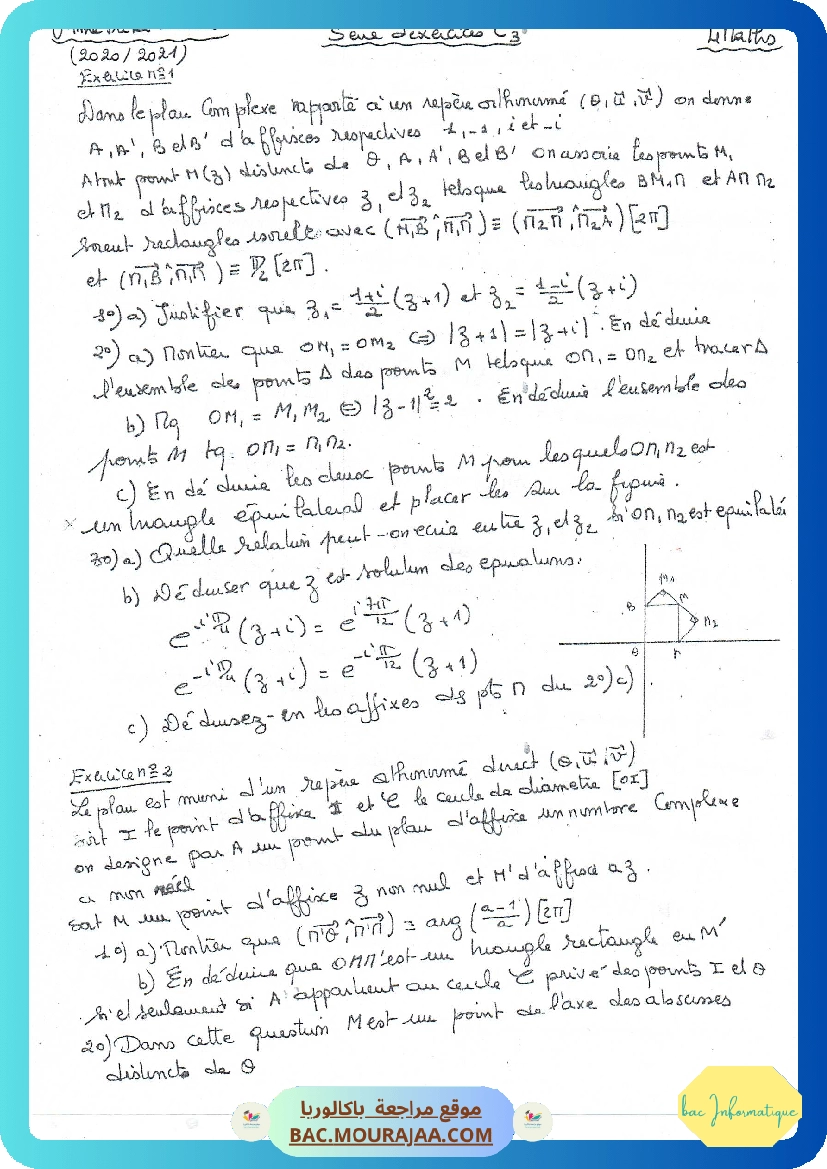 Serie d'exercices C3
4Maths
(2020/2021)
Exercice n°1
Dans le plan Complexe rapporté à un repère orthonormé (O, u, v) on donne
A, A', B et B' d'affixces respectives 1, -1, i et -i
A tout point M(z) distincts de O, A, A', B et B' on associe les points M1
et M2 d'affixces respectives z1 et z2 tels que les triangles BM1M et AM M2
soient rectangles isocèle avec (M1B ^ M1M) ≡ (M2M ^ M2A) [2π]
et (M1B ^ M1M) ≡ π/2 [2π].
1°) a) Justifier que z1 = 1+i/2 (z+1) et z2 = 1-i/2 (z+i)
2°) a) Montrer que OM1 = OM2 ⇔ |z+1| = |z+i|. En déduire
l'ensemble des points Δ des points M tels que OM1 = OM2 et tracer Δ
b) Mq OM1 = M1M2 ⇔ |z-1|² = 2. En déduire l'ensemble des
points M tq. OM1 = M1M2.
c) En déduire les deux points M pour lesquels OM1M2 est
un triangle équilateral et placer les sur la figure.
3°) a) Quelle relation peut-on ecrie entre z1 et z2 si OM1M2 est equilaté
b) Déduiser que z est solution des equations.
e^{-iπ/4} (z+i) = e^{i7π/12} (z+1)
e^{-iπ/4} (z+i) = e^{-iπ/12} (z+1)
c) Déduisez-en les affixes ds pts M du 2°) c)
M1
B
M
M2
O
A
Exercice n°2
Le plan est muni d'un repère othonormé direct (O, u, v)
soit I le point d'affixe 1 et C le cercle de diametre [OI]
on designe par A un point du plan d'affixe un nombre Complexe
a non réel
Soit M un point d'affixe z non nul et M' d'affixe az.
1°) a) Montrer que (M'O ^ M'M) = arg (a-1/a) [2π]
b) En déduire que OMM' est un triangle rectangle en M'
si et seulement si A appartient au cercle C privé des points I et O
2°) Dans cette question M est un point de l'axe des abscisses
distincts de O
موقع مراجعة باكالوريا
BAC.MOURAJAA.COM
bac Informatique